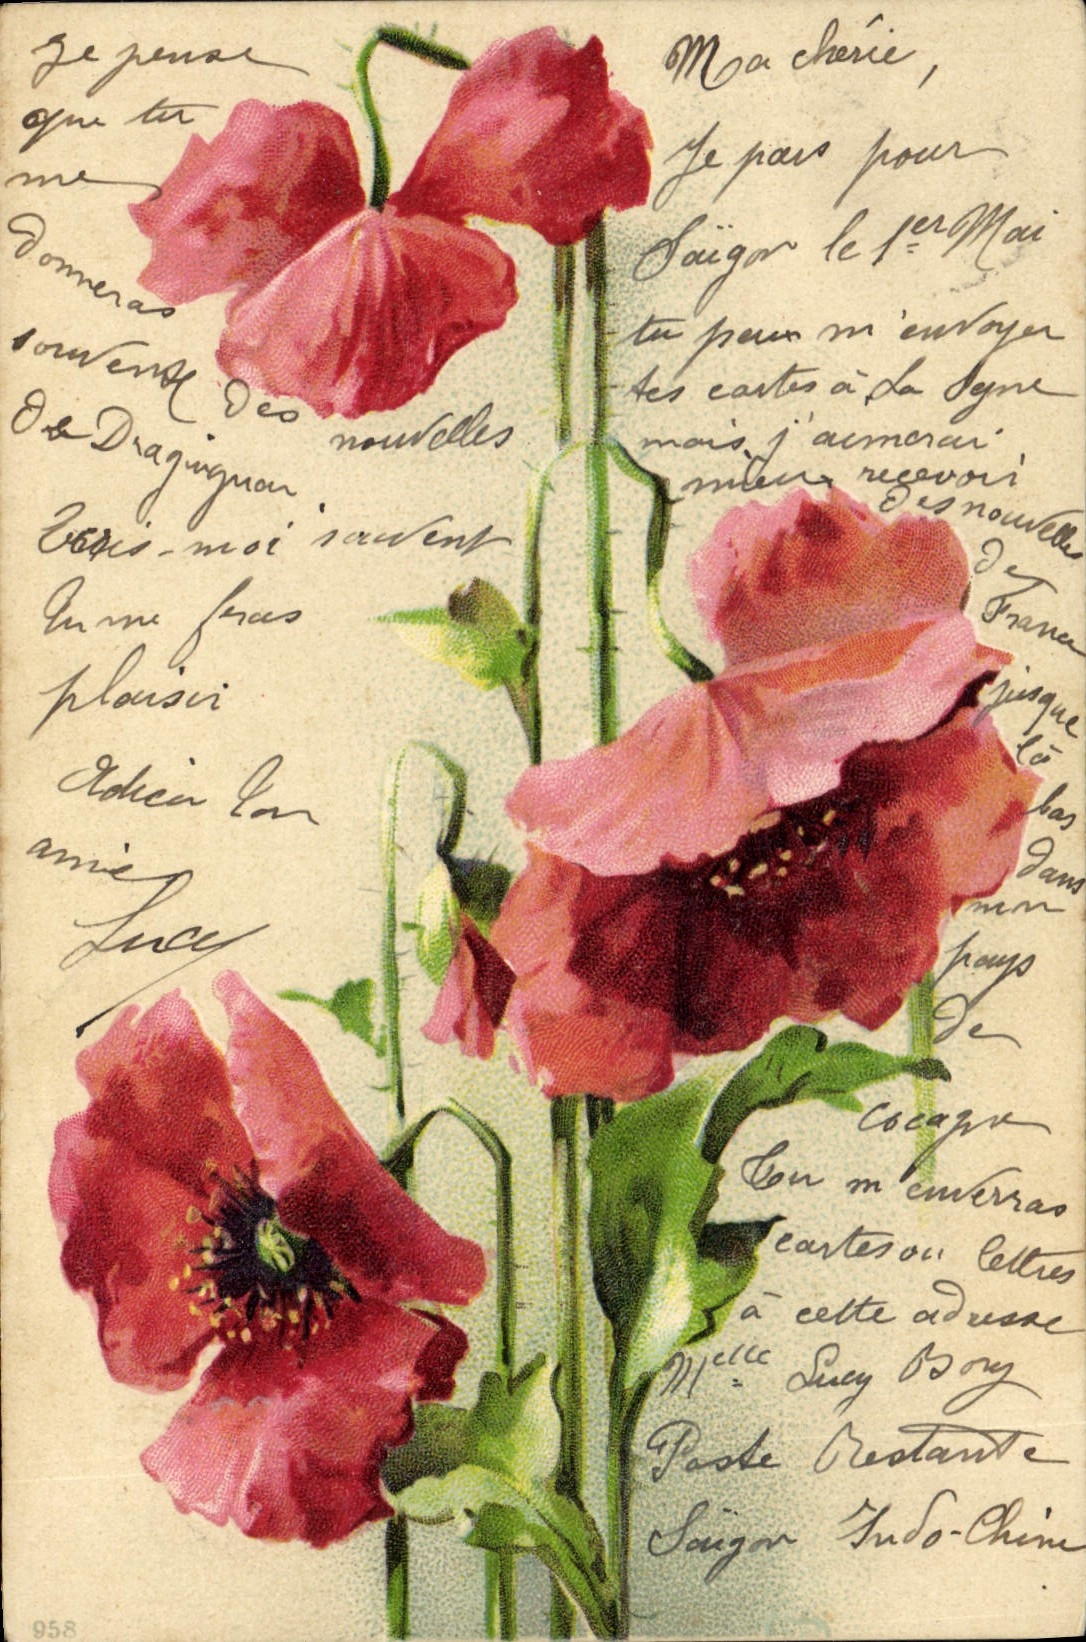 Ma chérie,
Je pars pour
Saïgon le 1er Mai
tu peux m'envoyer
tes cartes à La Seyne
mais j'aimerai
mieux recevoir
des nouvelles
de
France
jusque
là
bas
dans
mon
pays
de
cocagne
Tu m'enverras
cartes ou lettres
à cette adresse
Melle Lucy Bory
Poste Restante
Saïgon Indo-Chine
Je pense
que tu
me
donneras
souvent des
nouvelles
de Draguignan
Ecris-moi souvent
Tu me feras
plaisir
Adieu Ton
amie
Lucy
958